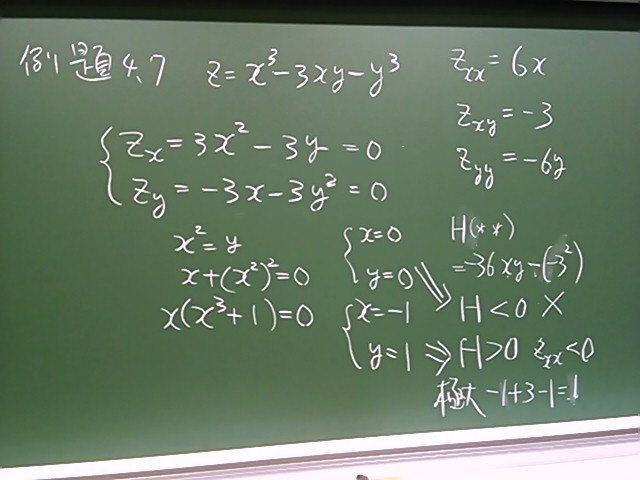 例題4.7 z=x³-3xy-y³
z_xx=6x
z_xy=-3
z_yy=-6y
z_x=3x²-3y=0
z_y=-3x-3y²=0
x²=y
x+(x²)²=0
x(x³+1)=0
x=0
y=0
x=-1
y=1
H(**)
=-36xy-(-3²)
⇒ H<0 ×
⇒ H>0 z_xx<0
極大 -1+3-1=1